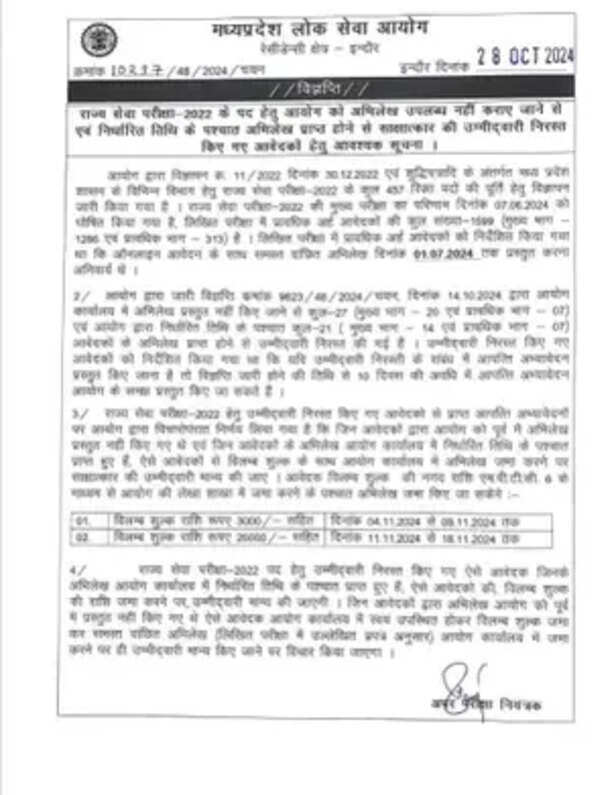 मध्यप्रदेश लोक सेवा आयोग
रेसीडेन्सी क्षेत्र - इन्दौर
क्रमांक 10237/48/2024/चयन इन्दौर दिनांक 28 OCT 2024
//विज्ञप्ति//
राज्य सेवा परीक्षा-2022 के पद हेतु आयोग को अभिलेख उपलब्ध नहीं कराए जाने से
एवं निर्धारित तिथि के पश्चात अभिलेख प्राप्त होने से साक्षात्कार की उम्मीदवारी निरस्त
किए गए आवेदकों हेतु आवश्यक सूचना ।
आयोग द्वारा विज्ञापन क. 11/2022 दिनांक 30.12.2022 एवं शुद्धिपत्रादि के अंतर्गत मध्य प्रदेश
शासन के विभिन्न विभाग हेतु राज्य सेवा परीक्षा-2022 के कुल 457 रिक्त पदों की पूर्ति हेतु विज्ञापन
जारी किया गया है । राज्य सेवा परीक्षा-2022 की मुख्य परीक्षा का परिणाम दिनांक 07.06.2024 को
घोषित किया गया है, लिखित परीक्षा में प्रावधिक अर्ह आवेदकों की कुल संख्या-1599 (मुख्य भाग -
1286 एवं प्रावधिक भाग - 313) है । लिखित परीक्षा में प्रावधिक अर्ह आवेदकों को निर्देशित किया गया
था कि ऑनलाइन आवेदन के साथ समस्त वांछित अभिलेख दिनांक 01.07.2024 तक प्रस्तुत करना
अनिवार्य थे ।
2/ आयोग द्वारा जारी विज्ञप्ति क्रमांक 9823/48/2024/चयन, दिनांक 14.10.2024 द्वारा आयोग
कार्यालय में अभिलेख प्रस्तुत नहीं किए जाने से कुल-27 (मुख्य भाग - 20 एवं प्रावधिक भाग - 07)
एवं आयोग द्वारा निर्धारित तिथि के पश्चात कुल-21 ( मुख्य भाग - 14 एवं प्रावधिक भाग - 07)
आवेदकों के अभिलेख प्राप्त होने से उम्मीदवारी निरस्त की गई है । उम्मीदवारी निरस्त किए गए
आवेदकों को निर्देशित किया गया था कि यदि उम्मीदवारी निरस्ती के संबंध में आपत्ति अभ्यावेदन
प्रस्तुत किए जाना है तो विज्ञप्ति जारी होने की तिथि से 10 दिवस की अवधि में आपत्ति अभ्यावेदन
आयोग के समक्ष प्रस्तुत किए जा सकते हैं ।
3/ राज्य सेवा परीक्षा-2022 हेतु उम्मीदवारी निरस्त किए गए आवेदकों से प्राप्त आपत्ति अभ्यावेदनों
पर आयोग द्वारा विचारोपरांत निर्णय लिया गया है कि जिन आवेदकों द्वारा आयोग को पूर्व में अभिलेख
प्रस्तुत नहीं किए गए थे एवं जिन आवेदकों के अभिलेख आयोग कार्यालय में निर्धारित तिथि के पश्चात
प्राप्त हुए हैं, ऐसे आवेदकों से विलम्ब शुल्क के साथ आयोग कार्यालय में अभिलेख जमा करने पर
साक्षात्कार की उम्मीदवारी मान्य की जाए । आवेदक विलम्ब शुल्क की नगद राशि एम.पी.टी.सी. 6 के
माध्यम से आयोग की लेखा शाखा में जमा करने के पश्चात अभिलेख जमा किए जा सकेंगे :-
01. विलम्ब शुल्क राशि रूपए 3000/- सहित दिनांक 04.11.2024 से 08.11.2024 तक
02. विलम्ब शुल्क राशि रूपए 25000/- सहित दिनांक 11.11.2024 से 18.11.2024 तक
4/ राज्य सेवा परीक्षा-2022 पद हेतु उम्मीदवारी निरस्त किए गए ऐसे आवेदक जिनके
अभिलेख आयोग कार्यालय में निर्धारित तिथि के पश्चात प्राप्त हुए हैं, ऐसे आवेदकों की, विलम्ब शुल्क
की राशि जमा करने पर, उम्मीदवारी मान्य की जाएगी । जिन आवेदकों द्वारा अभिलेख आयोग को पूर्व
में प्रस्तुत नहीं किए गए थे ऐसे आवेदक आयोग कार्यालय में स्वयं उपस्थित होकर विलम्ब शुल्क जमा
कर समस्त वांछित अभिलेख (लिखित परीक्षा में उल्लेखित प्रपत्र अनुसार) आयोग कार्यालय में जमा
करने पर ही उम्मीदवारी मान्य किए जाने पर विचार किया जाएगा ।
अपर परीक्षा नियंत्रक